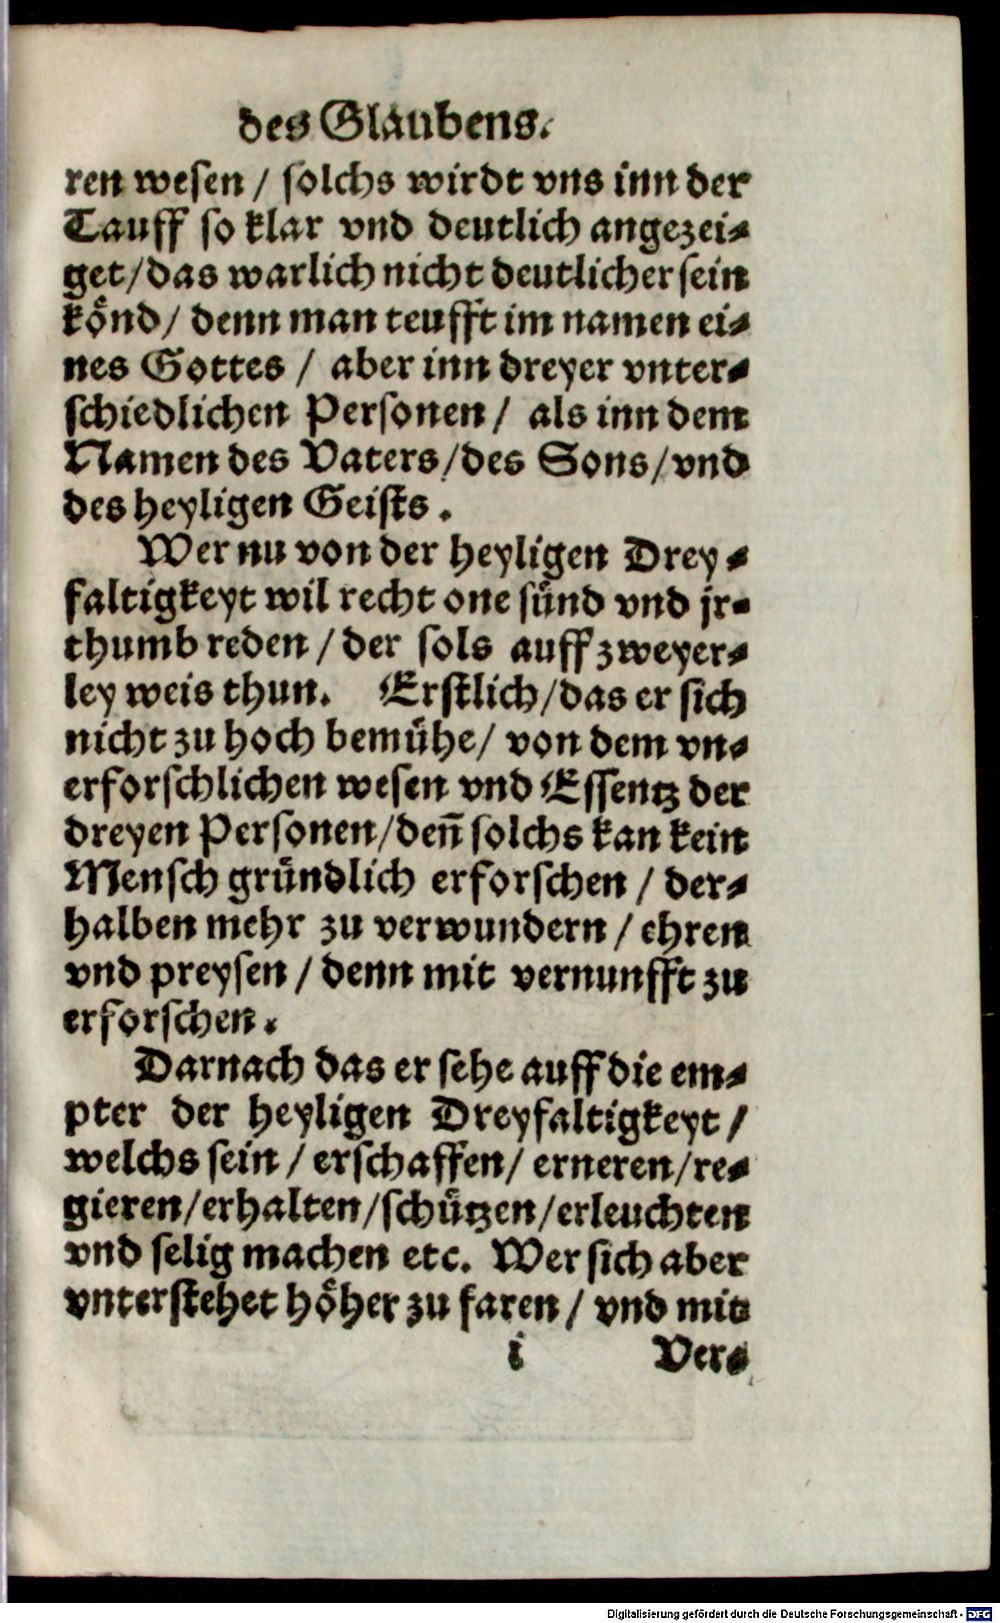 des Glaubens.
ren wesen / solchs wirdt vns inn der
Tauff so klar vnd deutlich angezei-
get / das warlich nicht deutlicher sein
könd / denn man teufft im namen ei-
nes Gottes / aber inn dreyer vnter-
schiedlichen Personen / als inn dem
Namen des Vaters / des Sons / vnd
des heyligen Geists .
Wer nu von der heyligen Drey-
faltigkeyt wil recht one sünd vnd jr-
thumb reden / der sols auff zweyer-
ley weis thun. Erstlich / das er sich
nicht zu hoch bemühe / von dem vn-
erforschlichen wesen vnd Essentz der
dreyen Personen / deñ solchs kan kein
Mensch gründlich erforschen / der-
halben mehr zu verwundern / ehren
vnd preysen / denn mit vernunfft zu
erforschen.
Darnach das er sehe auff die em-
pter der heyligen Dreyfaltigkeyt /
welchs sein / erschaffen / erneren / re-
gieren / erhalten / schützen / erleuchten
vnd selig machen etc. Wer sich aber
vnterstehet höher zu faren / vnd mit
i Ver-
Digitalisierung gefördert durch die Deutsche Forschungsgemeinschaft - DFG